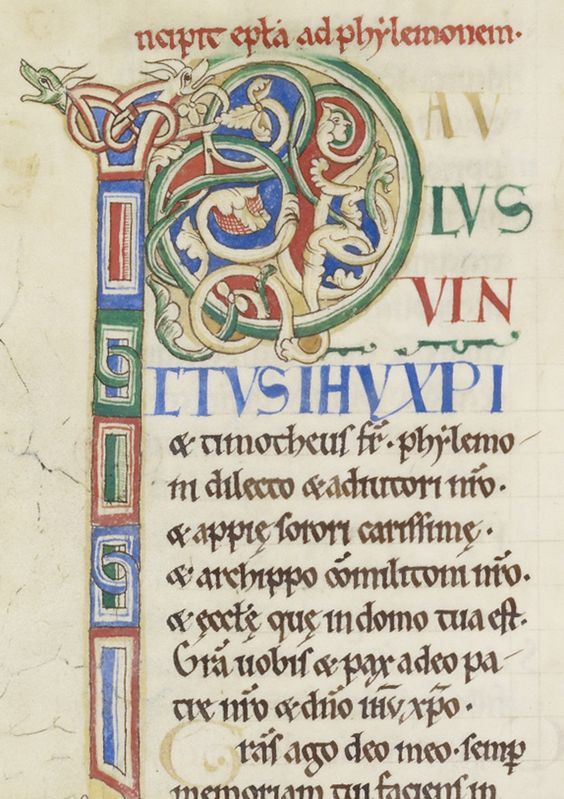 ncipit epłā ad phylemonem·
PAV
LVS
VIN
CTVS IHV XPI
& timotheus fr̄· phylemo-
ni dilecto & adiutori nr̄o·
& appię sorori carissimę·
& archippo cōmilitoni nr̄o·
& ęcclę quę in domo tua est·
Gr̄a uobis & pax a deo pa-
tre nr̄o & dn̄o ih̄u xp̄o·
Grās ago deo meo· semp̱
memoriam tui faciens in